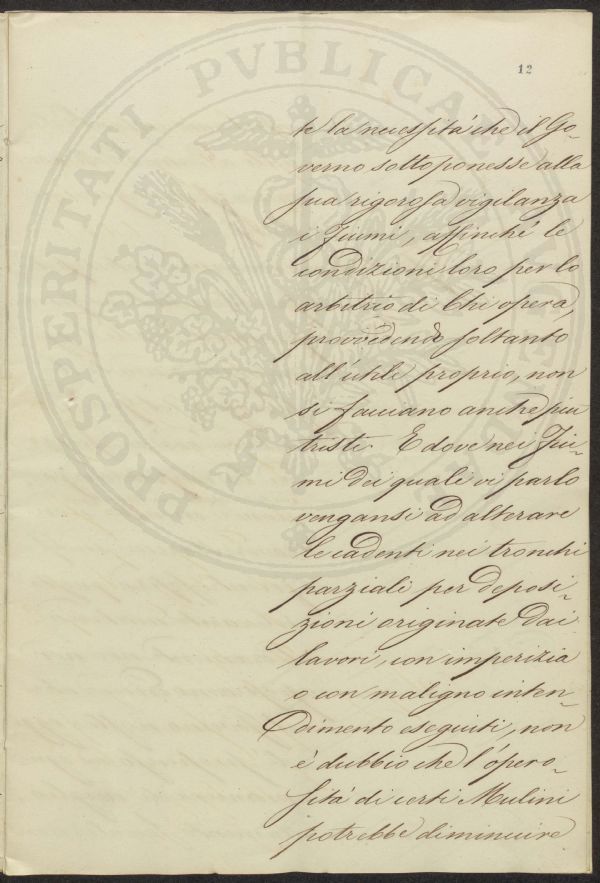 12
te la necessità che il Go-
verno sottoponesse alla
sua rigorosa vigilanza
i Fiumi, affinché le
condizioni loro per lo
arbitrio di Chi opera,
provvedendo soltanto
all'utile proprio, non
si facciano anche più
tristi. E dove nei Fiu-
mi dei quali vi parlo
vengansi ad alterare
le cadenti nei tronchi
parziali per deposi-
zioni originate dai
lavori, con imperizia
o con maligno inten-
dimento eseguiti, non
è dubbio che l'opero-
sità di certi Mulini
potrebbe diminuire
PROSPERITATI PVBLICAE